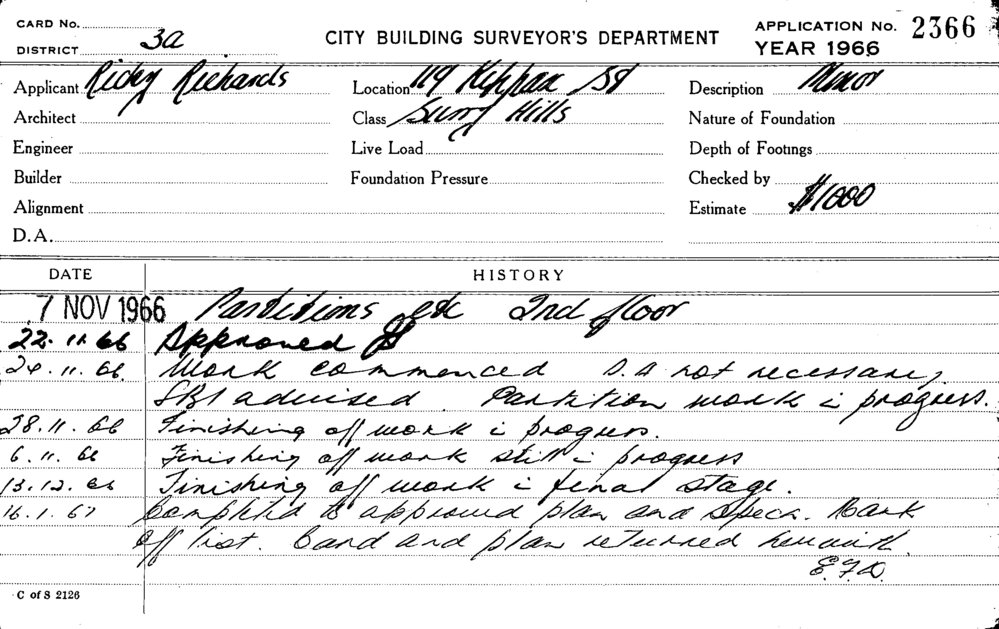 CARD No.
DISTRICT 3a
CITY BUILDING SURVEYOR'S DEPARTMENT
APPLICATION No. 2366
YEAR 1966
Applicant Ricky Richards
Location 119 Kippax St
Description Minor
Architect
Class Surry Hills
Nature of Foundation
Engineer
Live Load
Depth of Footings
Builder
Foundation Pressure
Checked by
Alignment
Estimate $1000
D.A.
DATE
HISTORY
7 NOV 1966 Partitions etc 2nd floor
22.11.66 Approved
24.11.66. Work commenced D.A not necessary,
SBI advised. Partition work i progress.
28.11.66 Finishing off work i progress.
6.11.66 Finishing off work still i progress
13.12.66 Finishing off work i final stage.
16.1.67 Completed to approved plan and specn. Mark
off list. Card and plan returned herewith.
E.F.D.
C of S 2126